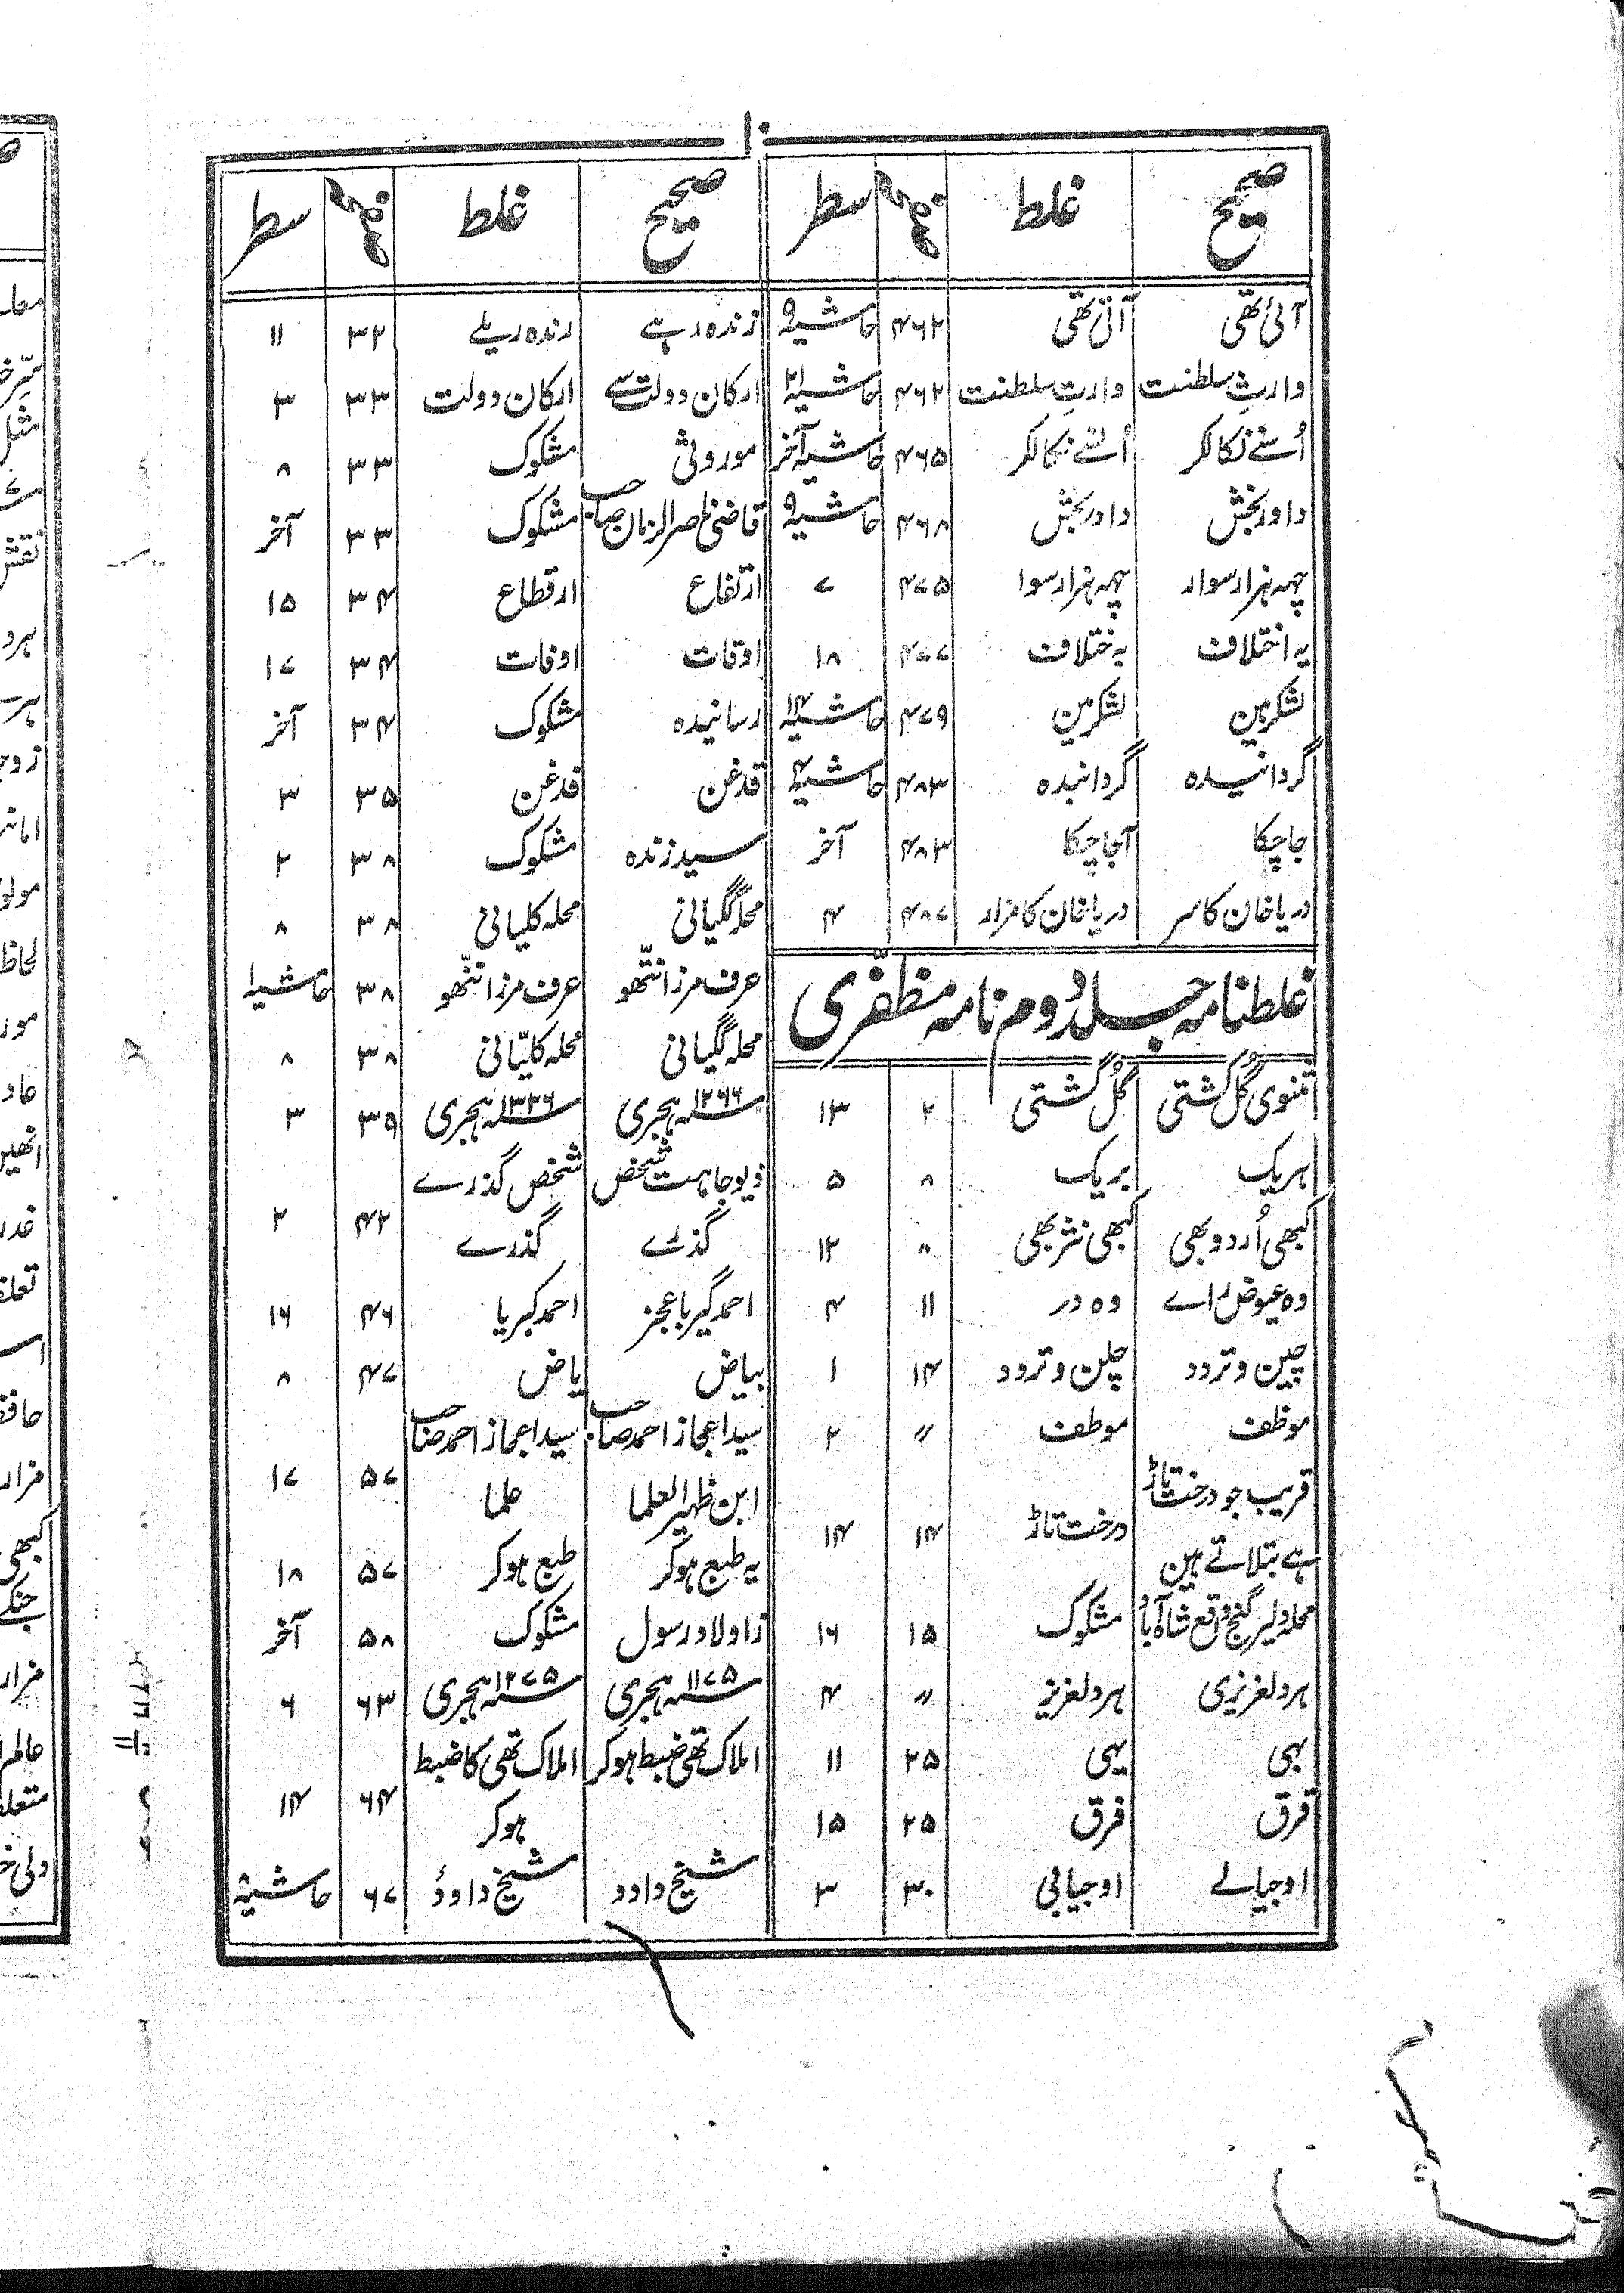 ۱۰
صحیح غلط صفحہ سطر
آئی تھی آنی تھی ۴۶۲ حاشیہ ۹
وارثِ سلطنت وارتِ سلطنت ۴۶۲ حاشیہ ۲۱
اُسنے نکالکر ۴۶۵ حاشیہ آخر
داور بخش دادر بخش ۴۶۸ حاشیہ ۹
چہہ ہزار سوار چہہ ہزار سوا ۴۷۵ ۷
یہ اختلاف یہ ختلاف ۴۷۷ ۱۸
لشکر مین لشکر مین ۴۷۹ حاشیہ ۱۴
گردانیدہ گردانبدہ ۴۸۳ حاشیہ ۴
جاچکا آجاچکا ۴۸۳ آخر
دریا خان کا سر دریا خان کا مزار ۴۸۷ ۴
غلطنامہ جلد دُوم نامہ مظفّری
مثنوی گُل کُشتی گُل گشتی ۲ ۱۳
ہریک بریک ۸ ۵
کبھی اُردو بھی کبھی نثر بھی ۸ ۱۲
وہ عیوض اے وہ در ۱۱ ۴
چین و تردد چلن و تردد ۱۴ ۱
موظف موطف // ۲
قریب جو درخت تاڑ
ہے بتلاتے ہین درخت تاڑ ۱۴ ۱۴
محلہ دلیر گنج واقع شاہ آباد مشکوک ۱۵ ۱۶
ہردلعزیزی ہردلعزیز // ۴
بہی یہی ۲۵ ۱۱
قرق فرق ۲۵ ۱۵
اوجیالے اوجیالی ۳۰ ۳
صحیح غلط صفحہ سطر
زندہ رہے رندہ ریلے ۳۲ ۱۱
ارکان دولت سے ارکان دولت ۳۳ ۳
موروثی مشکوک ۳۳ ۸
قاضی ناصر الزمان صاحب مشکوک ۳۳ آخر
ارتفاع ارقطاع ۳۴ ۱۵
اوقات اوفات ۳۴ ۱۷
رسانیدہ مشکوک ۳۴ آخر
قدغن فدغن ۳۵ ۳
سید زندہ مشکوک ۳۸ ۲
محلہ گگیانی محلہ کلیانی ۳۸ ۸
عرف مرزا نتھو عرف مرزا نتھو ۳۸ حاشیہ ۱
محلہ گگیانی محلہ کلیّانی ۳۸ ۸
۱۲۶۶ ہجری ۱۳۲۶ ہجری ۳۹ ۳
ذیوجاہت شخص شخص گذرے
گذرے گذرے ۴۲ ۲
احمد گیر باعجز احمد کبریا ۴۶ ۱۶
بیاض یاض ۴۷ ۸
سید اعجاز احمد صاحب سید اعجاز احمد صاحب
ابن ظہیر العلما علما ۵۷ ۱۷
یہ طبع ہوکر طبع ہوکر ۵۷ ۱۸
زاولاد رسول مشکوک ۵۸ آخر
۱۱۷۵ ہجری ۱۲۷۵ ہجری ۶۳ ۶
املاک تھی ضبط ہوکر املاک تھی کا ضبط
ہوکر ۶۴ ۱۴
شیخ داود شیخ داودؑ ۶۷ حاشیہ